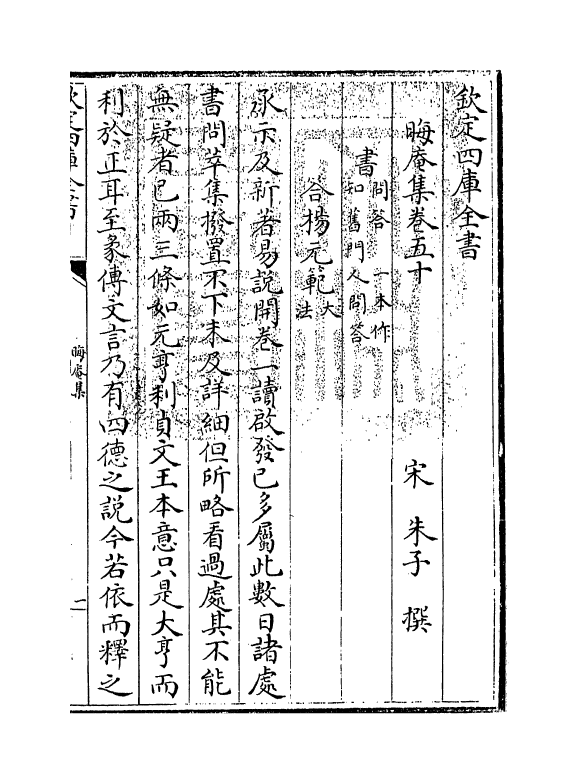 欽定四庫全書
晦庵集卷五十
宋 朱子 撰
書
問答 一本作
如舊門人問答
答楊元範
大
法
承示及新著易說開卷一讀啟發已多屬此數日諸處
書問萃集撥置不下未及詳細但所略看過處其不能
無疑者已兩三條如元亨利貞文王本意只是大亨而
利於正耳至彖傳文言乃有四德之說今若依而釋之
欽定四庫全書
晦庵集